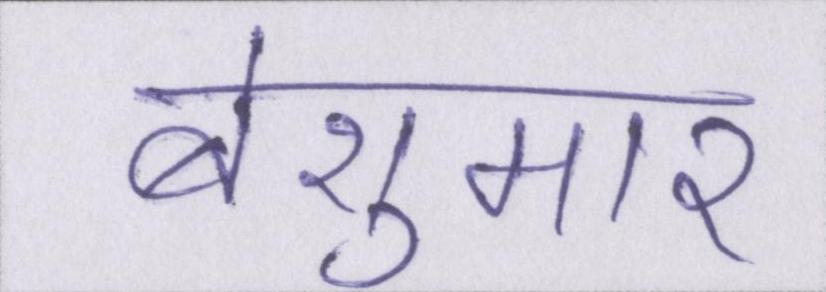 बेशुमार